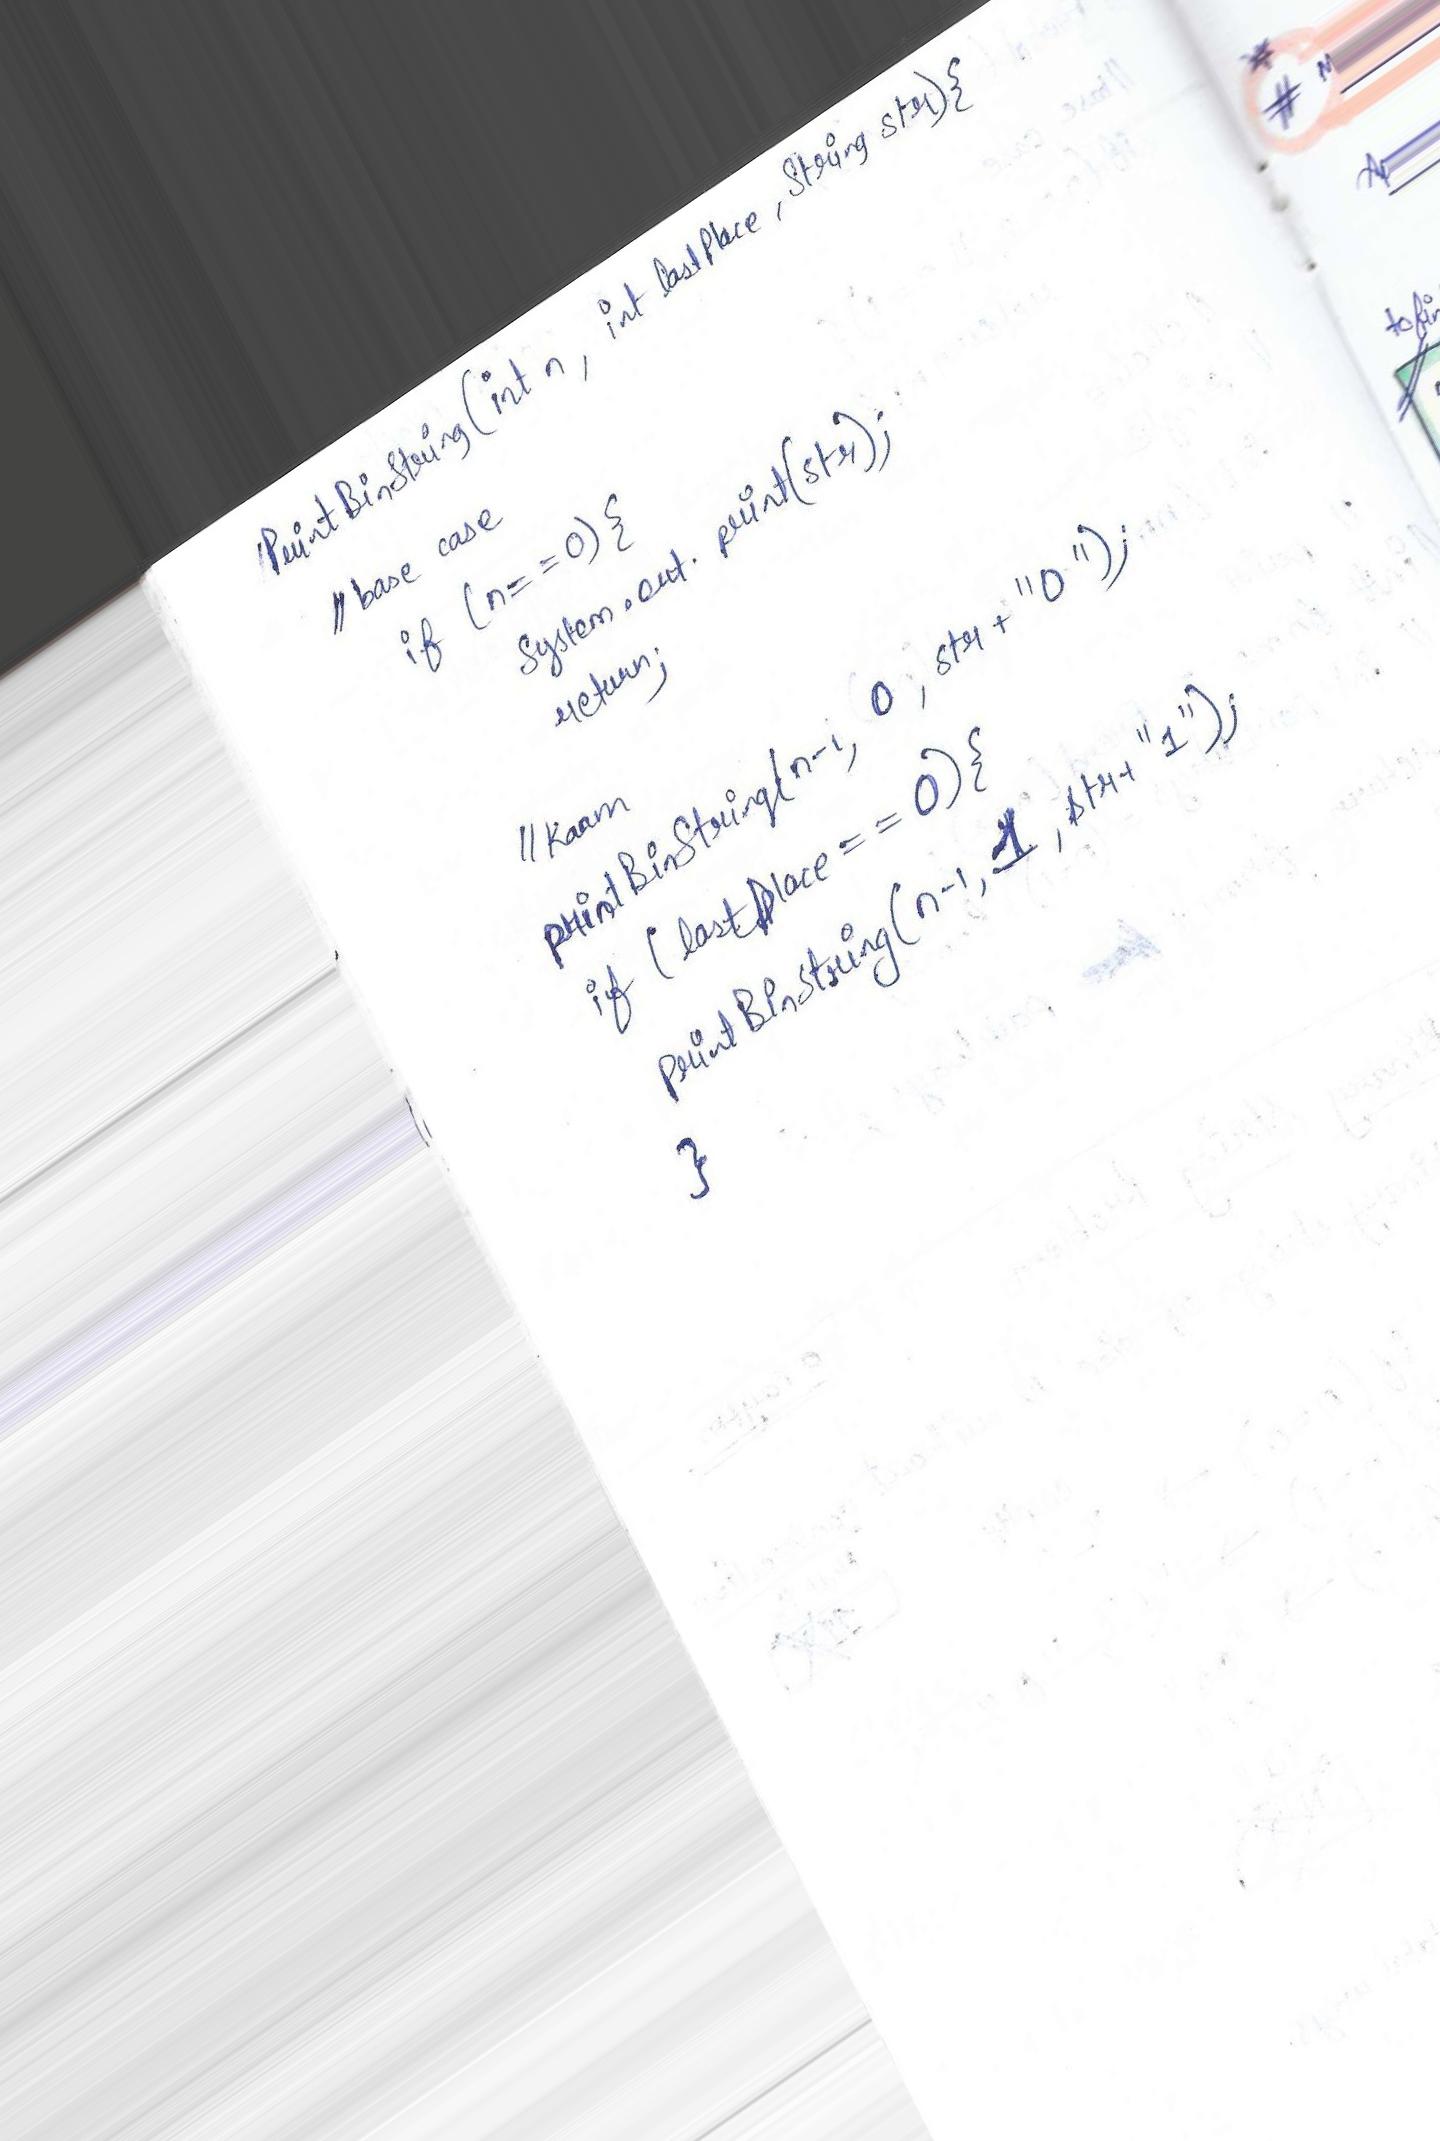 PrintBinString(int n, int lastPlace, String str){
//base case
if (n==0){
System.out.print(str);
return;
//Kaam
printBinString(n-1, 0, str+"0");
if (lastPlace==0){
printBinString(n-1, 1, str+"1");
}
#